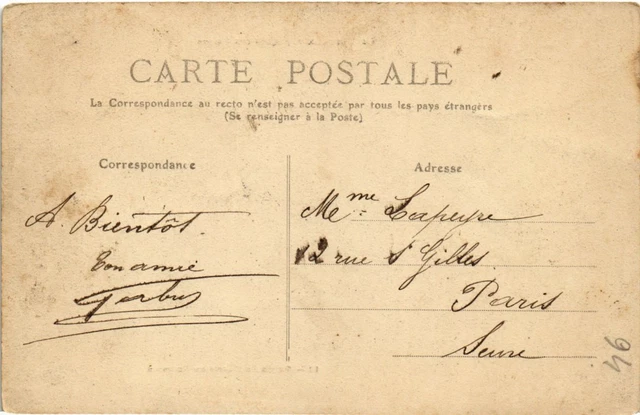 CARTE POSTALE
La Correspondance au recto n'est pas acceptée par tous les pays étrangers
(Se renseigner à la Poste)
Correspondance
A. Bientôt.
Ton amie
Adresse
Mme Lapeyre
12 rue St Gilles.
Paris
Seine
94